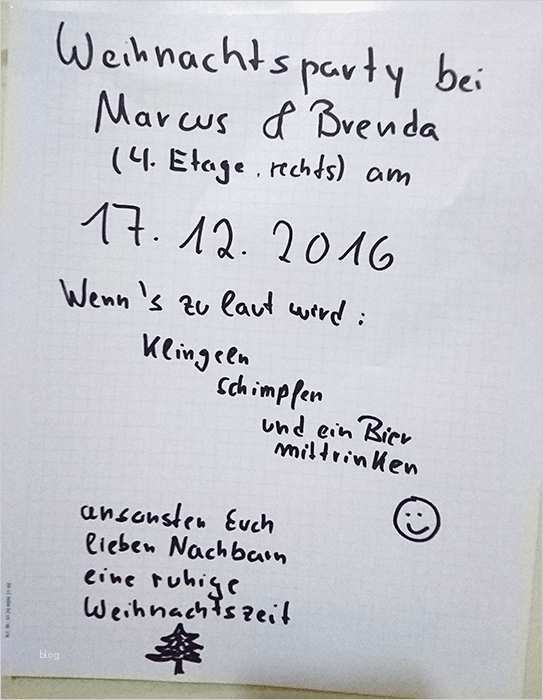 Weihnachtsparty bei
Marcus & Brenda
(4. Etage. rechts) am
17. 12. 2016
Wenn's zu laut wird:
Klingeln
schimpfen
und ein Bier
mittrinken
ansonsten Euch
lieben Nachbarn
eine ruhige
Weihnachtszeit
blog